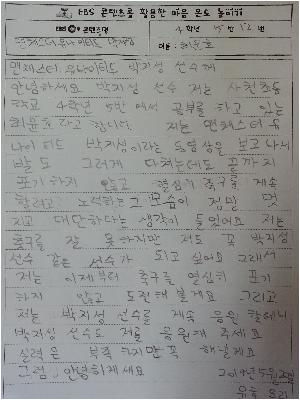 EBS 콘텐츠를 활용한 마음 온도 높이기
EBS 콘텐츠명
맨체스터 유나이티드 박지성
4학년 5반 12번
이름: 최윤호
맨체스터 유나이티드 박지성 선수께
안녕하세요 박지성 선수 저는 사천초등
학교 4학년 5반에서 공부를 하고 있는
최윤호라고 합니다. 저는 맨체스터 유
나이티드 박지성이라는 동영상을 보고 나서
발도 그러게 다쳤는데도 끝까지
포기하지 않고 열심히 축구를 계속
할려고 노력하는 그 모습이 정말 멋
지고 대단하다는 생각이 들었어요 저는
축구를 잘 못하지만 저도 꼭 박지성
선수 같은 선수가 되고 싶어요 그래서
저는 이제부터 축구를 열심히 포기
하지 않고 도전해볼게요 그리고
저는 박지성 선수를 계속 응원 할테니
박지성 선수도 저를 응원해 주세요
실력은 부족하지만 꼭 해낼게요
그럼, 안녕히계세요
2019년 5월 2일
윤호 올림